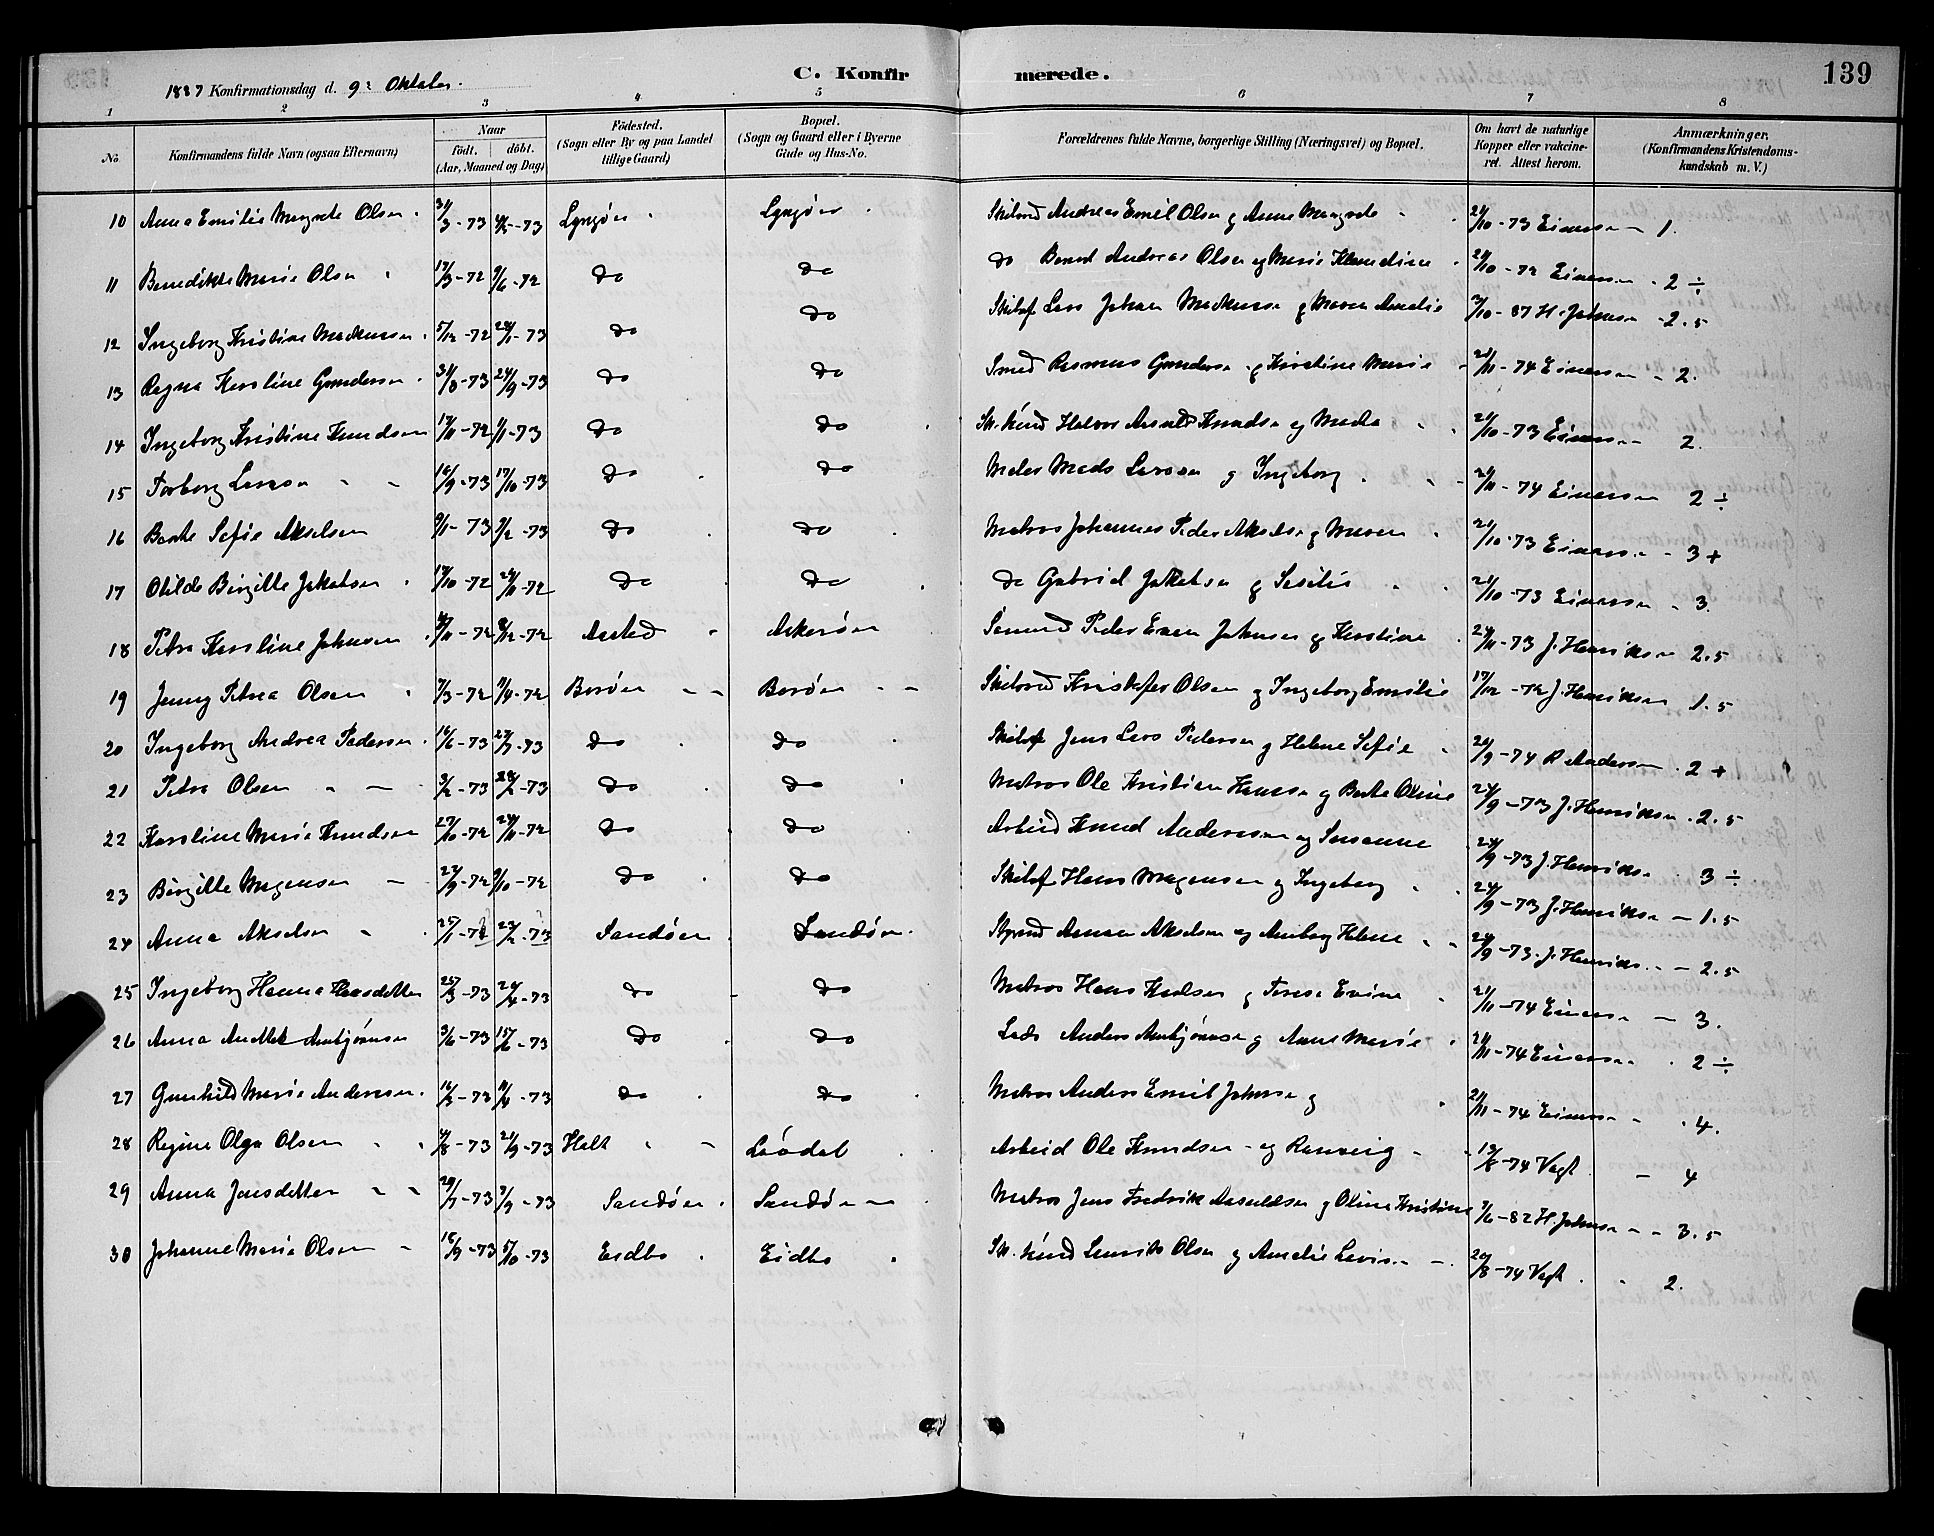 139
C. Konfirmerede.
1887 Konfirmationsdag d. 9de Oktober.
1 2 3 4 5 6 7 8
No.
Konfirmandens fulde Navn (ogsaa Efternavn)
Naar
födt. döbt.
(Aar, Maaned og Dag)
Födested.
(Sogn eller By og paa Landet
tillige Gaard)
Bopæl.
(Sogn og Gaard eller i Byerne
Gade og Hus-No.
Forældrenes fulde Navne, borgerlige Stilling (Næringsvei) og Bopæl.
Om havt de naturlige
Kopper eller vakcine-
ret. Attest herom.
Anmærkninger.
(Konfirmandens Kristendoms-
kundskab m. V.)
10 Anna Emilie Margrete Olsen 31/3-73 -73 Lyngøer Lyngøer Andreas Emil Olsen og Anne Margrete 21/10-73 Einersen 1.
11 Benedikte Marie Olsen 17/3-72 9/6-72 do do do Andreas Olsen og Marie Klaudine 21/10-72 Einersen 2 ÷
12 Ingeborg Kristine Markussen 5/12-72 28/1-73 do do Skibsf Lars Johan Markussen og Maren Amalie 3/10-87 H. Johnsen 2.5
13 Ragna Karoline Gundersen 31/8-73 24/9-73 do do Smed Rasmus Gundersen og Kirstine Marie 21/11-74 Einersen 2.
14 Ingeborg Kristine Knudsen 17/11-72 1/1-73 do do Halvor Knudsen og 21/10-73 Einersen 2.
15 Torborg Larsen 16/9-73 17/10-73 do do Maler Mads Larsen og Ingeborg 21/11-74 Einersen 2 ÷
16 Berte Sofie Akselsen 9/1-73 9/2-73 do do Matros Johannes Peder Akselsen og Maren 21/10-73 Einersen 3 +
17 Otilde Birgitte Jakobsen 17/10-72 24/11-72 do do do Gabriel Jakobsen og Sesilie 21/10-73 Einersen 3
18 Petra Karoline Johnsen /11-72 8/12-72 Askerøen Peder Johnsen og Karoline 24/11-73 J. Henriksen 2.5
19 Jenny Petrea Olsen 7/3-72 7/4-72 Borøen Borøen Kristofer Olsen og Ingeborg Emilie 17/12-72 J. Henriksen 1.5
20 Ingeborg Andrea Pedersen 16/6-73 27/7-73 do do Skibsf Jens Lars Pedersen og Helene Sofie 26/9-74 R Andersen 2 +
21 Petra Olsen 3/2-73 28/2-73 do do Matros Ole Kristian Hansen og Berte Oline 24/9-73 J. Henriksen 2.5
22 Karoline Marie Knudsen 27/10-72 24/11-72 do do Arbeid Knud Andersen og Susanne 24/9-73 J. Henriksen 3 ÷
23 Birgitte Mogensen 27/9-72 9/10-72 do do Skibsf Hans Mogensen og Ingeborg 24/9-73 J. Henriksen 1.5
24 Anna Akselsen 25/1-73 22/2-73 Sandøen Sandøen Akselsen og Helene 24/9-73 J. Henriksen 2.5
25 Ingeborg Hanna Hansdatter 25/3-73 20/4-73 do do Matros Hans Karlsen og 21/11-74 Einersen 3.
26 Anna 3/6-73 15/6-73 do do Lods Anders og Anne Marie 21/11-74 Einersen 2 ÷
27 Gunhild Marie Andersen 16/3-73 -73 do do Matros Anders Emil Johnsen og 21/11-74 Einersen 4.
28 Regine Olga Olsen 4/8-73 21/9-73 Holt Løvdal Arbeid Ole Knudsen og Ranveig 13/8-74 Vogt 4
29 Anna Jensdatter 29/7-73 7/9-73 Sandøen Sandøen Matros Jens Fredrik Aanuldsen og Oline Kristine 7/6-82 H. Johnsen 3.5
30 Johanne Marie Olsen 18/9-73 5/10-73 Eidbo Eidbo Olsen og Amalie 20/8-74 Vogt 2.